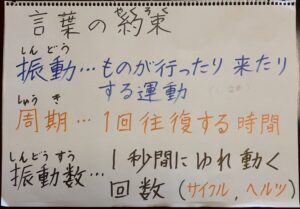 言葉の約束
やくそく
しんどう
振動…ものが行ったり来たり
する運動
しゅうき
周期…1回往復する時間
しんどうすう
振動数…1秒間にゆれ動く
回数(サイクル,ヘルツ)